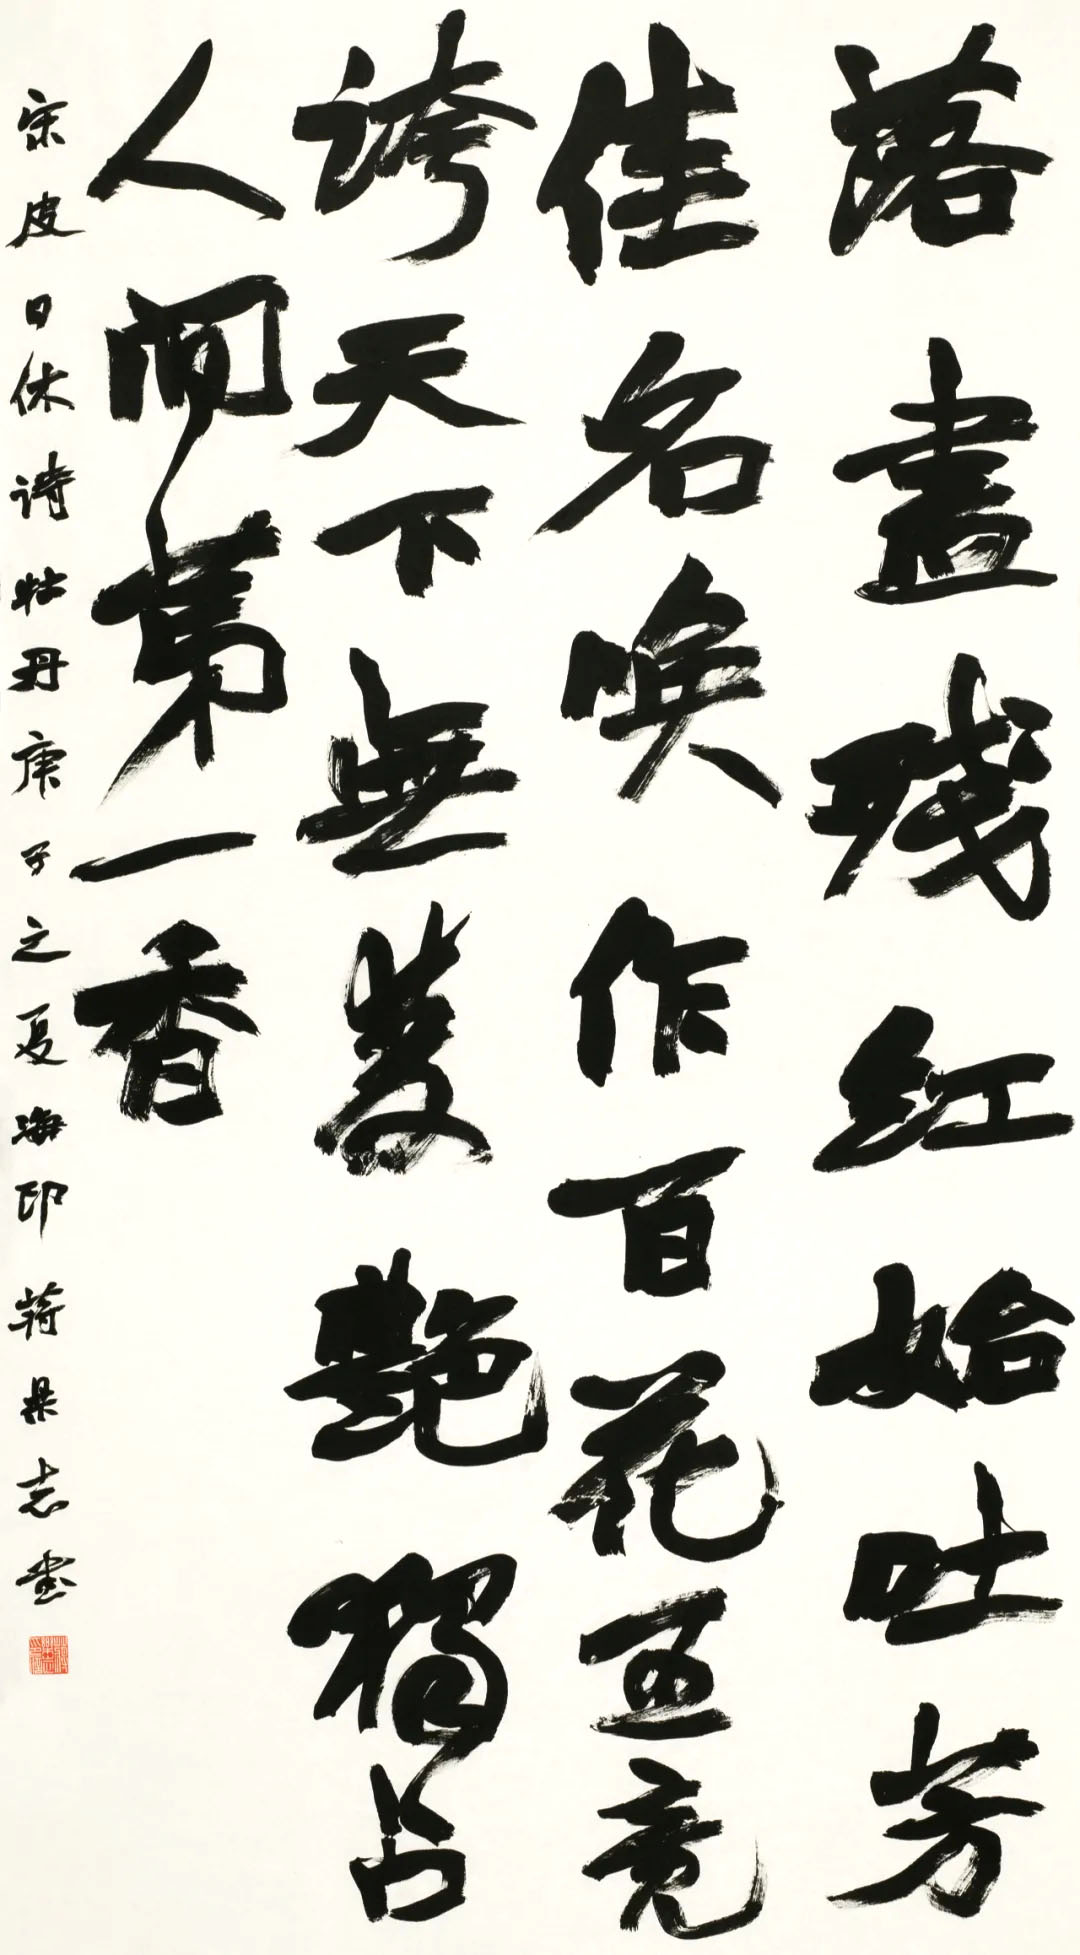 落盡殘紅始吐芳
佳名唤作百花王竞
誇天下無雙艷獨占
人间第一香
宋皮日休诗牡丹庚子之夏海印蒋果志书